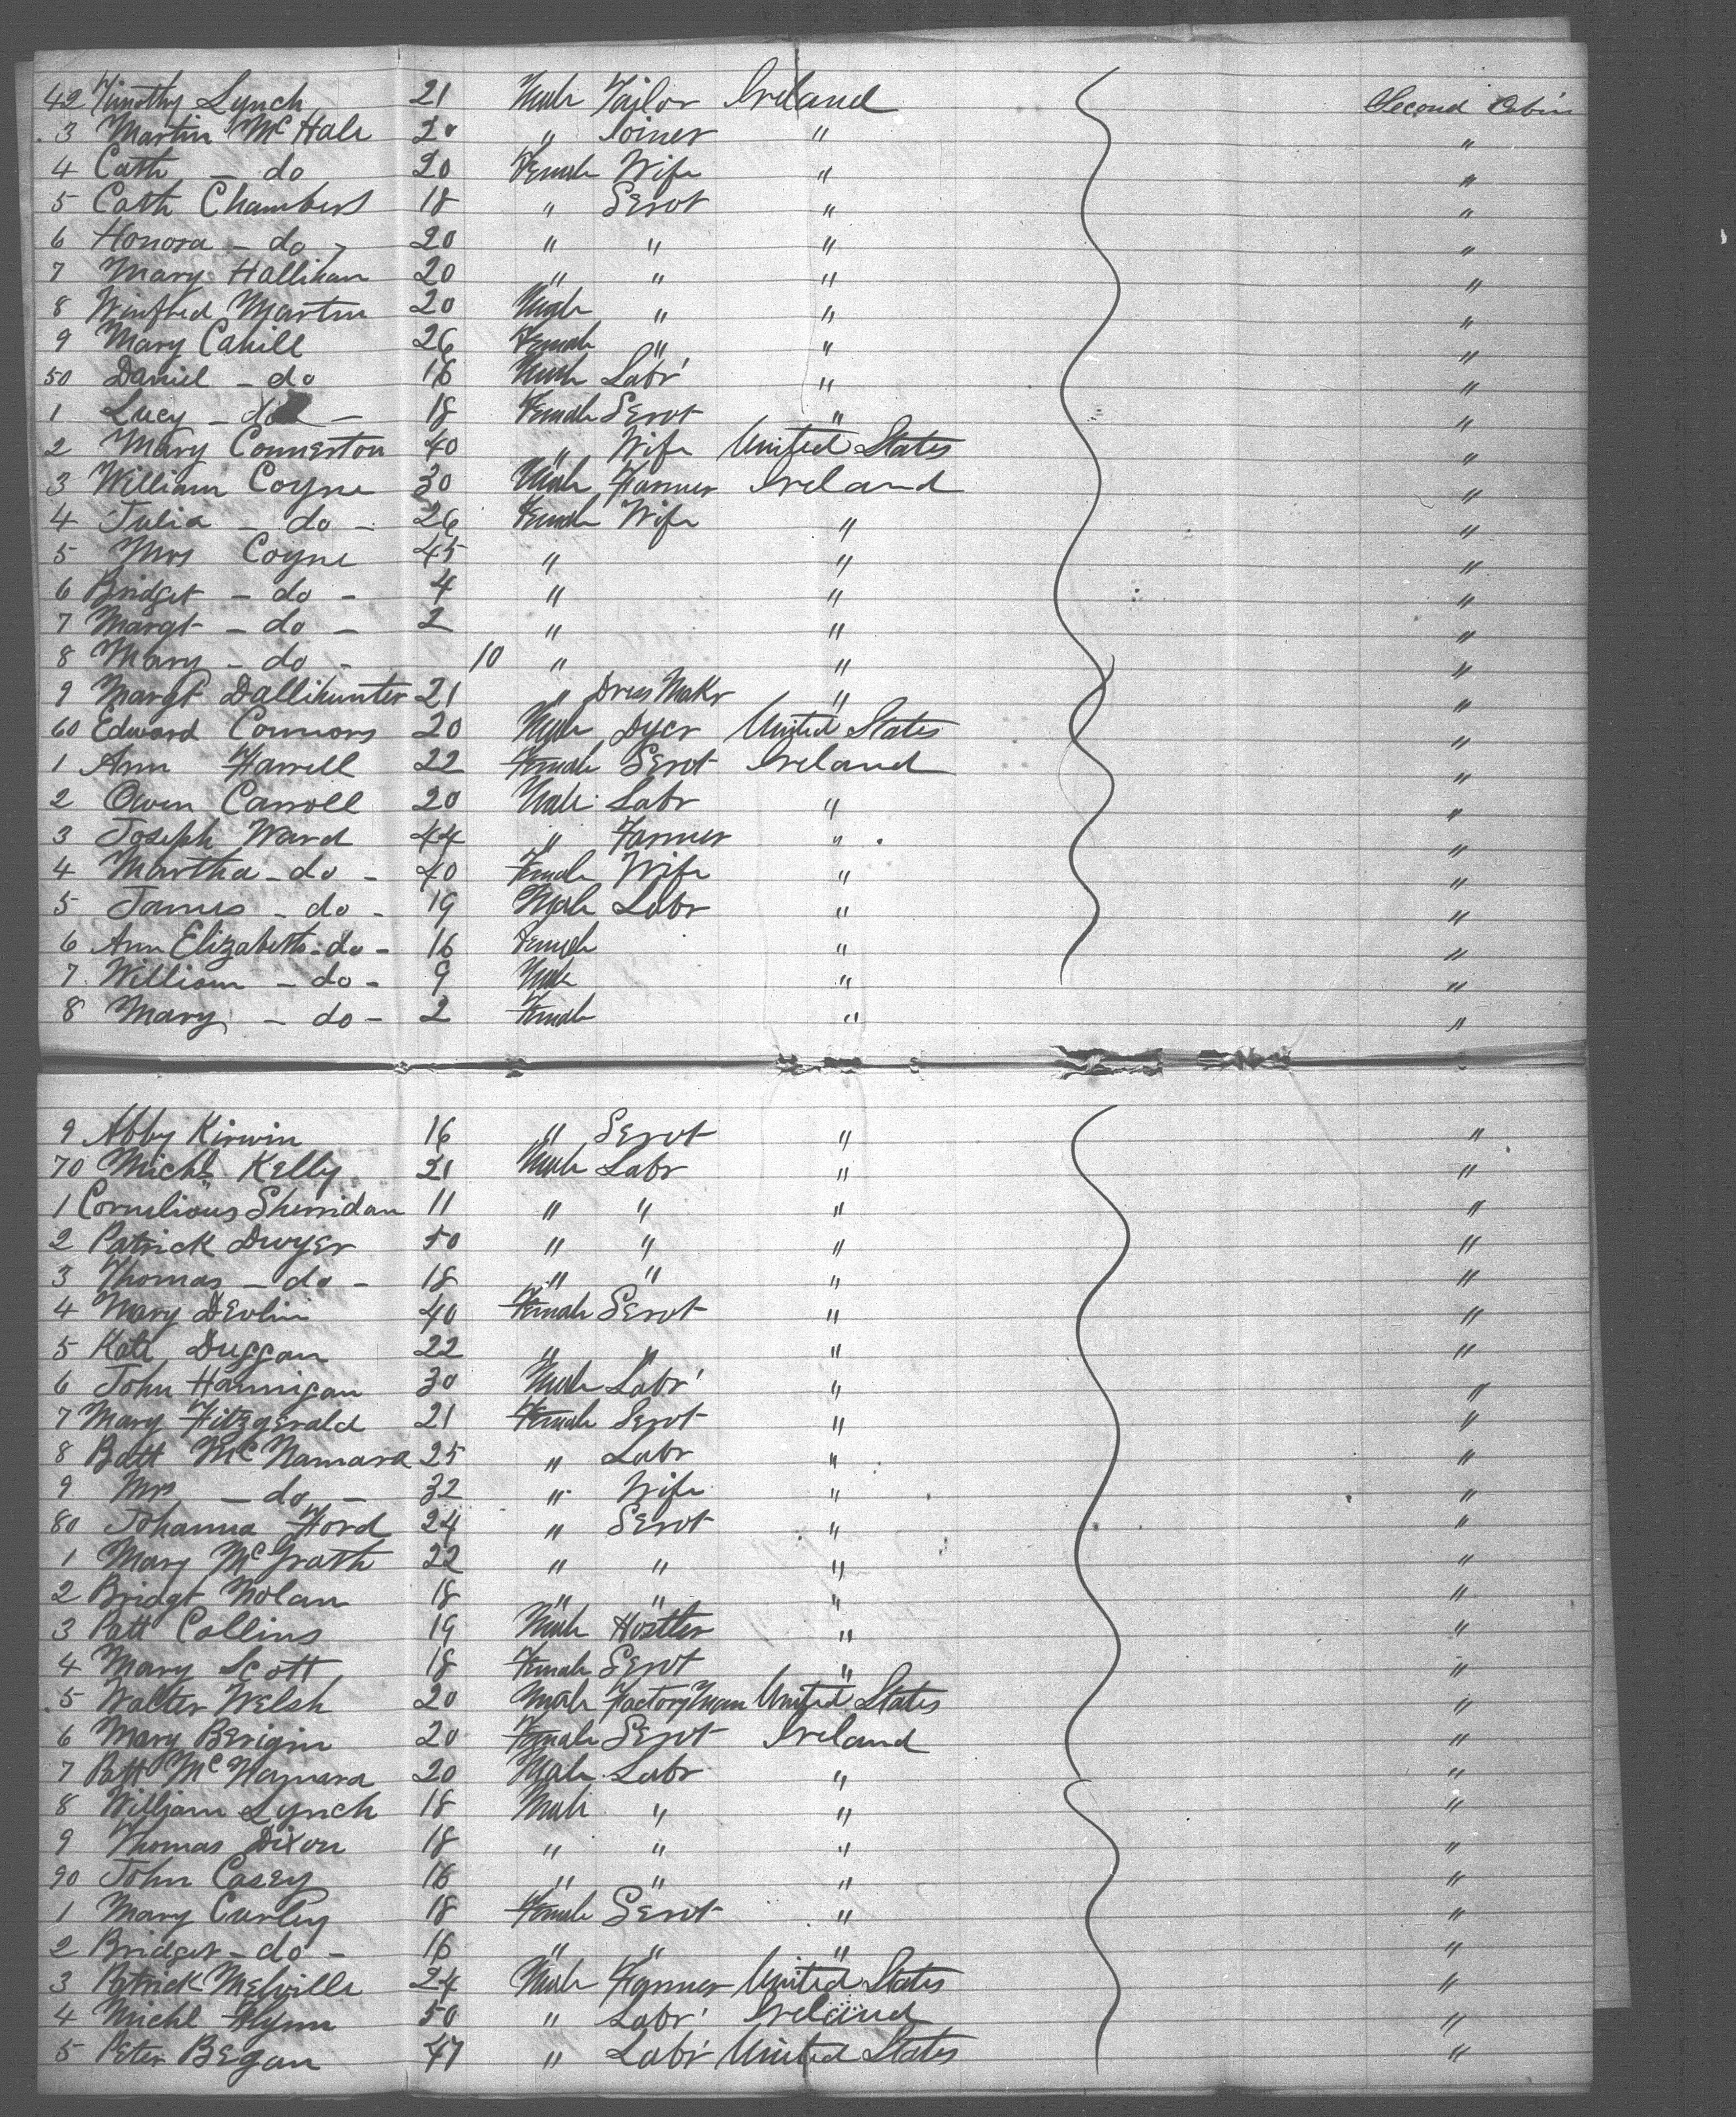 42 Timothy Lynch 21 Male Tailor Ireland Second Cabin
3 Martin McHale 20 " Joiner " "
4 Cath - do 20 Female Wife " "
5 Cath Chambers 18 " Servt " "
6 Honora - do - 20 " " " "
7 Mary Hallihan 20 " " " "
8 Winifred Martin 20 Male " " "
9 Mary Cahill 26 Female " " "
50 Daniel - do 18 Male Labr " "
1 Lucy - do - 18 Female Servt " "
2 Mary Connerton 40 " Wife United States "
3 William Coyne 30 Male Farmer Ireland "
4 Julia - do - 26 Female Wife " "
5 Mrs Coyne 45 " " "
6 Bridget - do - 4 " " "
7 Margt - do - 2 " " "
8 Mary - do - 10 " " "
9 Margt Dallihunter 21 " Dress Makr " "
60 Edward Connors 20 Male Dyer United States "
1 Ann Farrell 22 Female Servt Ireland "
2 Owen Carroll 20 Male Labr " "
3 Joseph Ward 44 " Farmer " "
4 Martha - do - 40 Female Wife " "
5 James - do - 19 Male Labr " "
6 Ann Elizabeth - do - 16 Female " "
7 William - do - 9 Male " "
8 Mary - do - 2 Female " "
9 Abby Kirwin 16 " Servt " "
70 Michl Kelly 21 Male Labr " "
1 Cornelious Sherridan 11 " " " "
2 Patrick Dwyer 50 " " " "
3 Thomas - do - 18 " " " "
4 Mary Devlin 40 Female Servt " "
5 Kate Duggan 22 " " " "
6 John Hannigan 30 Male Labr " "
7 Mary Fitzgerald 21 Female Servt " "
8 Batt McNamara 25 " Labr " "
9 Mrs - do - 32 " Wife " "
80 Johanna Ford 24 " Servt " "
1 Mary McGrath 22 " " " "
2 Bridgt Nolan 18 " " " "
3 Patt Collins 19 Male Hostler " "
4 Mary Scott 18 Female Servt " "
5 Walter Welsh 20 Male Factory Man United States "
6 Mary Berigin 20 Female Servt Ireland "
7 Patt McNamara 20 Male Labr " "
8 William Lynch 18 Male " " "
9 Thomas Dixon 18 " " " "
90 John Casey 16 " " " "
1 Mary Curley 18 Female Servt " "
2 Bridget - do - 16 " " " "
3 Patrick Melville 24 Male Farmer United States "
4 Michl Flynn 50 " Labr Ireland "
5 Peter Began 47 " Labr United States "